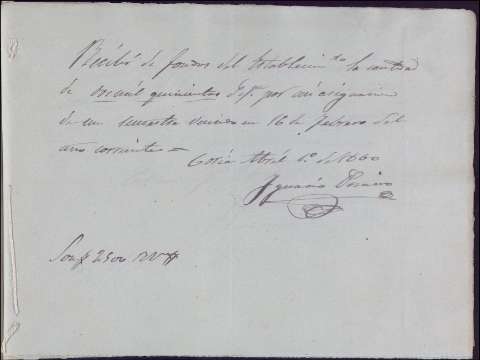 Recibí de fondos del Establecim.to la cantidad
de dos mil quinientos r.s por mi asignacion
de un semestre vencido en 16 de Febrero del
año corriente =
Coria Abril 1º de 1860
Ignacio
Son 2500 rv